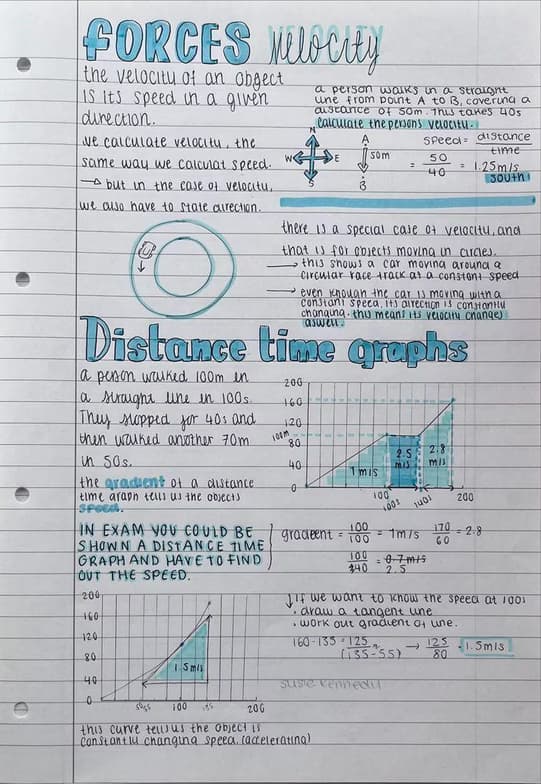 FORCES VELOCITY velocity
the velocity of an object
is its speed in a given
direction.
we calculate velocity, the
same way we calculat speed.
→ but in the case of velocity,
we also have to state direction.
a person walks in a straight
line from point A to B, covering a
distance of 50m. Thus takes 40s
calculate the persons velocity.
N
W E
S
A
50m
B
speed = distance
time
= 50 = 1.25m/s
40
south
there is a special case of velocity, and
that is for objects moving in circles.
→ this shows a car moving around a
circular race track at a constant speed
→ even though the car is moving with a
constant speed, its direction is constantly
changing. this means its velocity changes
aswell.
Distance time graphs
a person walked 100m in
a straight line in 100s.
They stopped for 40s and
then walked another 70m
in 50s.
the gradient of a distance
time graph tells us the objects
speed.
200
160
120
100m
80
40
0
1m/s
2.5
m/s
2.8
m/s
100
100s
200
IN EXAM YOU COULD BE
SHOWN A DISTANCE TIME
GRAPH AND HAVE TO FIND
OUT THE SPEED.
gradient = 100 = 1m/s 170 = 2.8
100 60
100 = 0.7m/s
2.5
200
160
120
80
40
0
1.5m/s
100
200
if we want to know the speed at 100s
. draw a tangent line
. work out gradient of line.
160-135 = 125
(135-55) → 125 . 1.5m/s
80
susie kennedy
this curve tells us the object is
constantly changing speed. (accelerating)